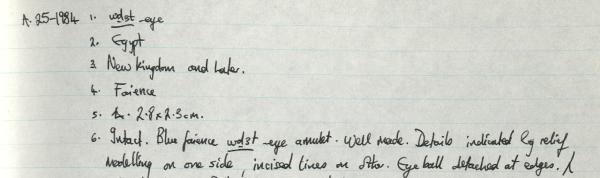 A. 25-1984 1. wḏ3t-eye
2. Egypt
3. New Kingdom and Later.
4. Faience
5. 2.8 x 2.3 cm.
6. Intact. Blue faience wḏ3t-eye amulet. Well made. Details indicated by relief
modelling on one side, incised lines on other. Eye ball detached at edges.